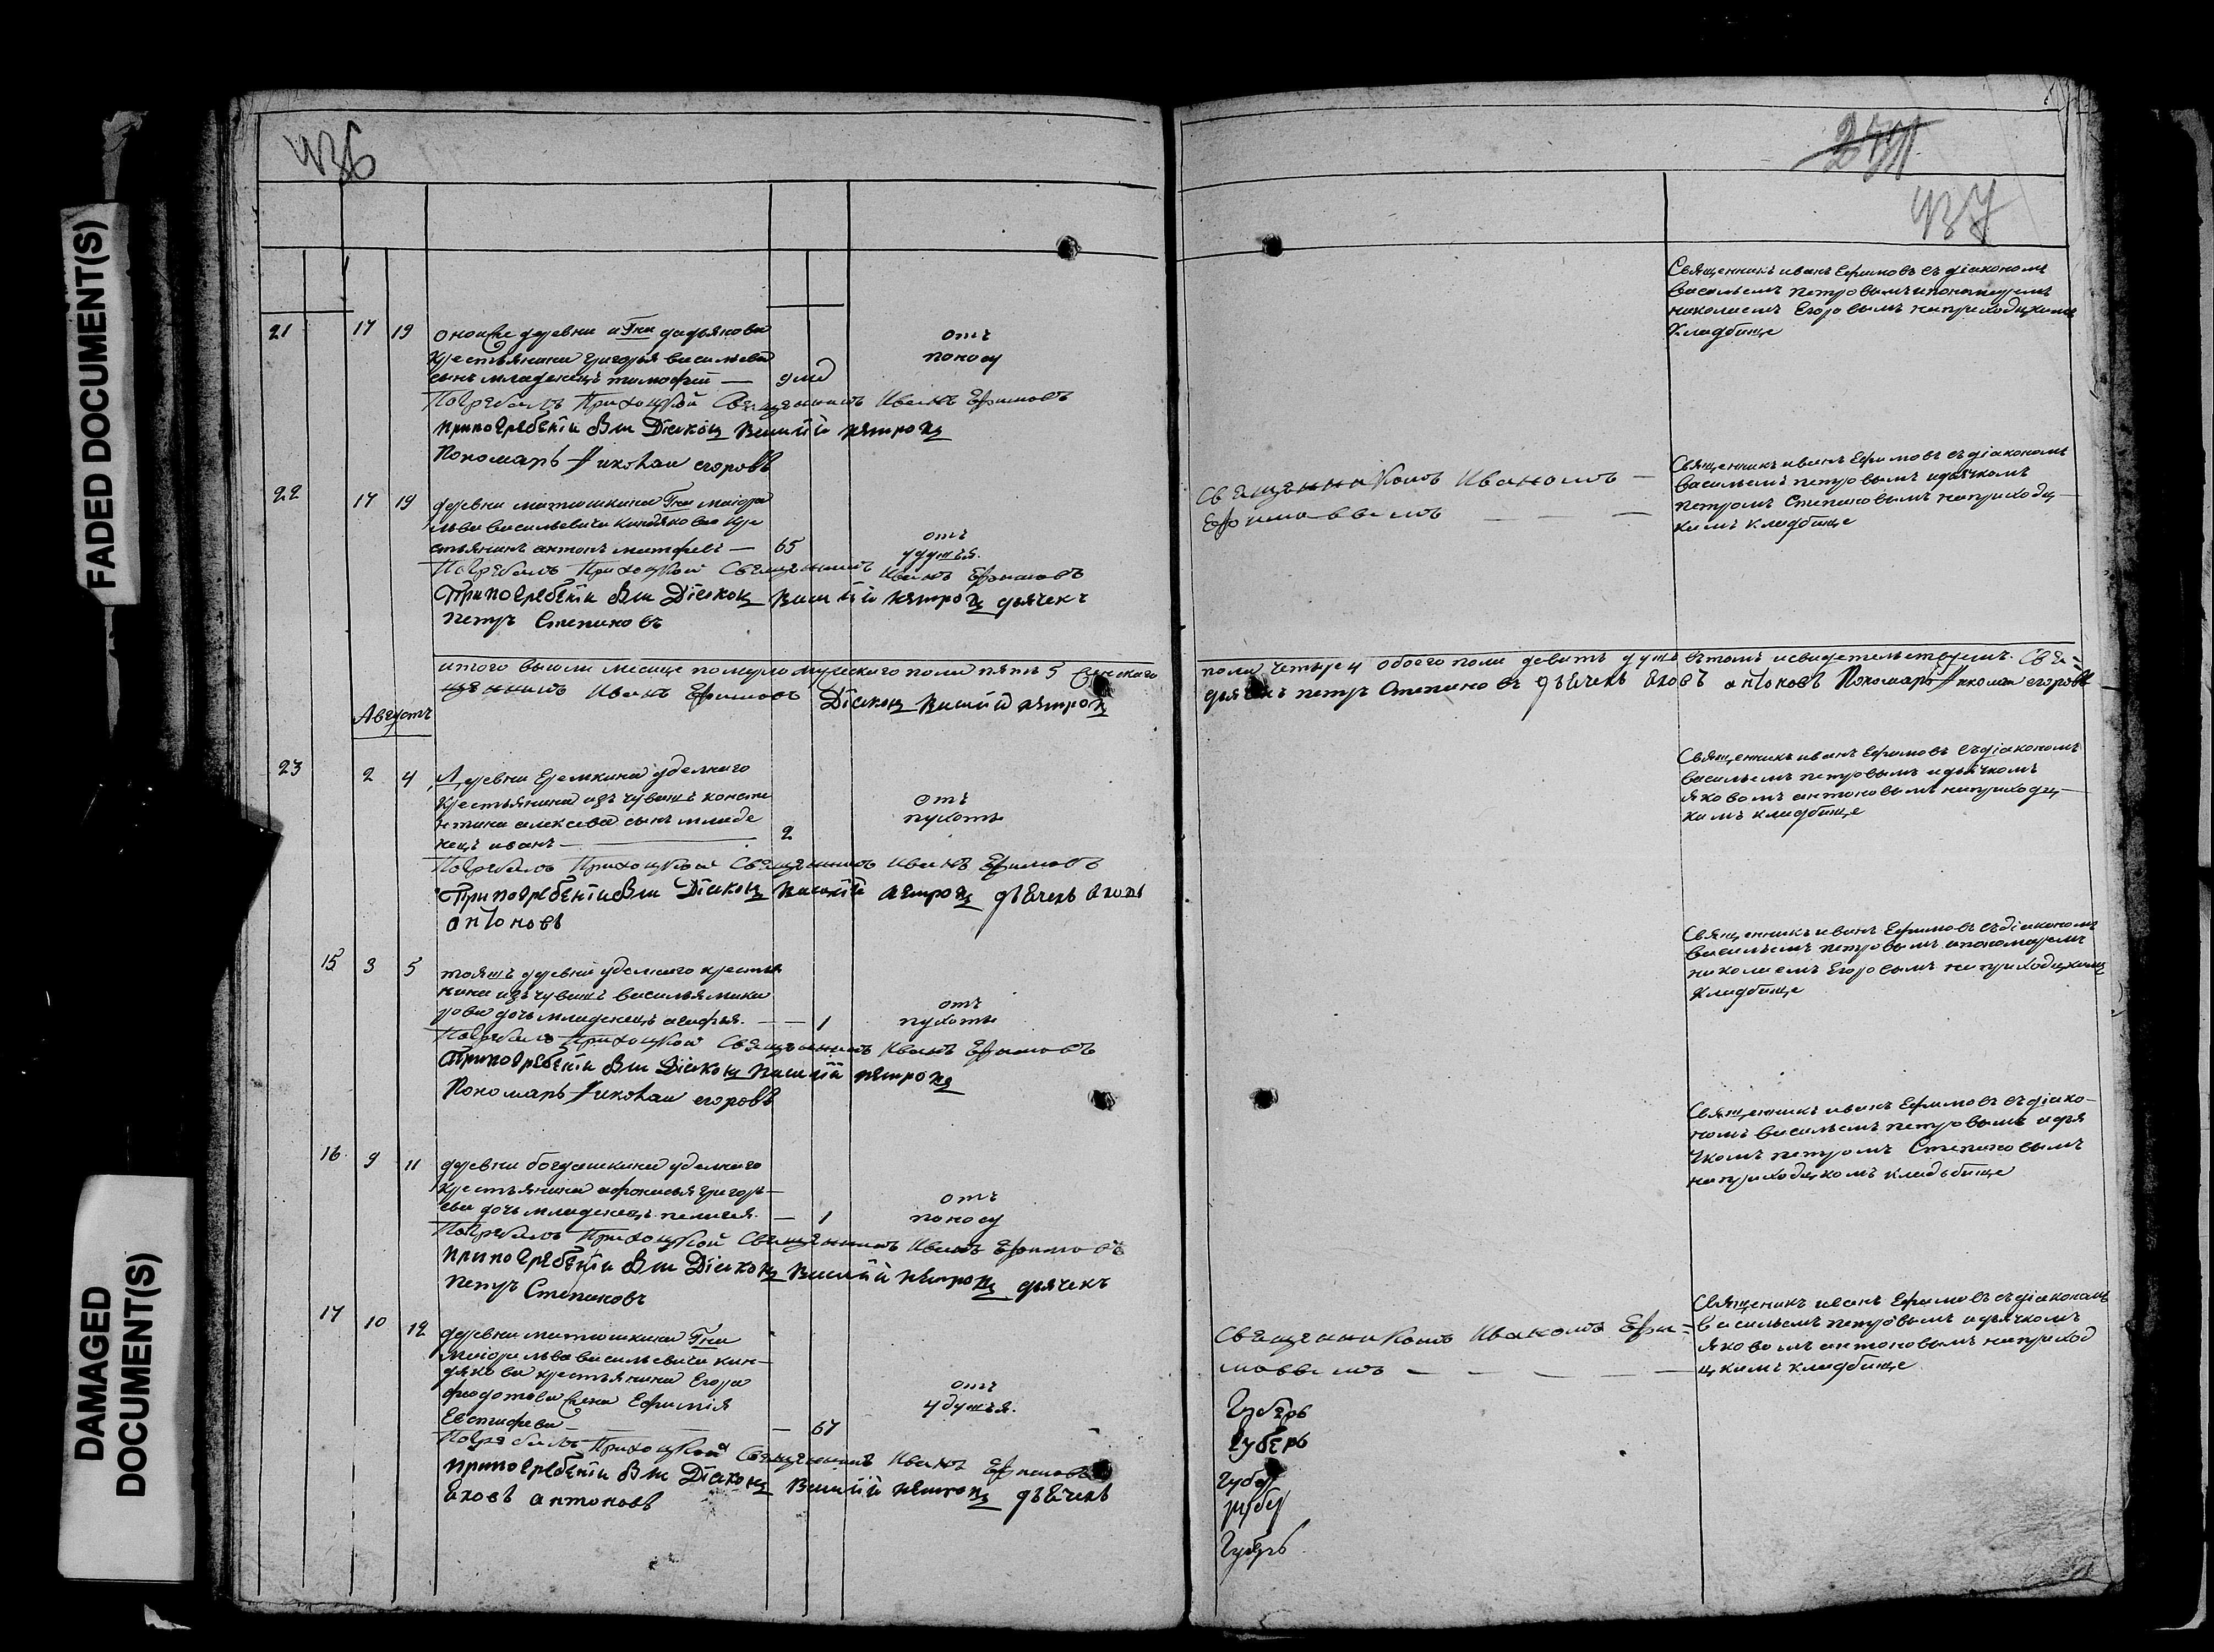 FADED DOCUMENT(S)
DAMAGED
DOCUMENT(S)
436
437
21 17 19 оной же деревни Гна дадьянова
крестьянина григорья васильева
сынъ младенецъ тимофей — 9 ме
отъ
поносу
Погребалъ Приходцкой Священникъ Иванъ Ефимовъ
при погребенїи были Дїаконъ Василїй петровъ
Пономарь Николаи егоровъ
Священникъ иванъ Ефимовъ съ дiакономъ
васильемъ петровымъ и пономаремъ
николаемъ Егоровымъ на приходцкомъ
кладбище
22 17 19 деревни матюшкина Гна маiора
льва васильевича киндякова кре
стьянинъ антонъ матфевъ — 65
отъ
удушья.
Погребалъ Приходцкой Священникъ Иванъ Ефимовъ
При погребенїи были Дїаконъ Василїй петровъ дьячекъ
петръ Степановъ
Священникомъ Иваномъ —
Ефимоввымъ — — —
Священникъ иванъ Ефимовъ съ дiакономъ
васильемъ петровымъ и дьячкомъ
петромъ Степановымъ на приходц-
комъ кладбище
итого въ июли месяце померло мужеского пола пять 5 женского
пола четыре 4 обоего пола девять душъ въ томъ и свидетельствуемъ. Свя-
щенникъ Иванъ Ефимовъ Дїаконъ Василїй петровъ
дьячекъ петръ Степановъ дьячекъ яковъ антоновъ Пономарь Николаи егоровъ
Августъ
23 2 4 Деревни Еремкина уделнаго
крестьянина изъ чувашъ конста
нтина алексева сынъ младе
нецъ иванъ — 2
отъ
пухоты
Погребалъ Приходцкой Священникъ Иванъ Ефимовъ
При погребенїи были Дїаконъ Василїй петровъ дьячекъ яковъ
антоновъ
Священникъ иванъ Ефимовъ съ дiакономъ
васильемъ петровымъ и дьячкомъ
яковомъ антоновымъ на приходц-
комъ кладбище
15 3 5 тояжъ деревни уделнаго крестья
нина изъ чувашъ василья мака
рова дочь младенецъ агафья. — 1
отъ
пухоты
Погребалъ Приходцкой Священникъ Иванъ Ефимовъ
При погребенїи были Дїаконъ Василїй петровъ
Пономарь Николаи егоровъ
Священникъ иванъ Ефимовъ съ дiакономъ
васильемъ петровымъ и пономаремъ
николаемъ Егоровымъ на приходцкомъ
кладбище
16 9 11 деревни богдашкина уделнаго
крестьянина афонасья григорь-
ева дочь младенецъ пелагея. — 1
отъ
поносу
Погребалъ Приходцкой Священникъ Иванъ Ефимовъ
при погребенїи были Дїаконъ Василїй петровъ дьячекъ
петръ Степановъ
Священникъ иванъ Ефимовъ съ дiако-
номъ васильемъ петровымъ и дья
чкомъ петромъ Степановымъ
на приходцкомъ кладьбище
17 10 12 деревни матюшкина Гна
маiора льва васильевича кин-
дякова крестьянина Егора
федотова жена Ефимiя
Евстафева — 67
отъ
удушья.
Погребалъ Приходцкой Священникъ Иванъ Ефимовъ
при погребенїи были Дїаконъ Василїй петровъ дьячекъ
яковъ антоновъ
Священникомъ Иваномъ Ефи-
моввымъ — — — —
Священикъ иванъ Ефимовъ съ дiакономъ
васильемъ петровымъ и дьячкомъ
яковомъ антоновымъ на приход
цкомъ кладбище
Губерь
губерь